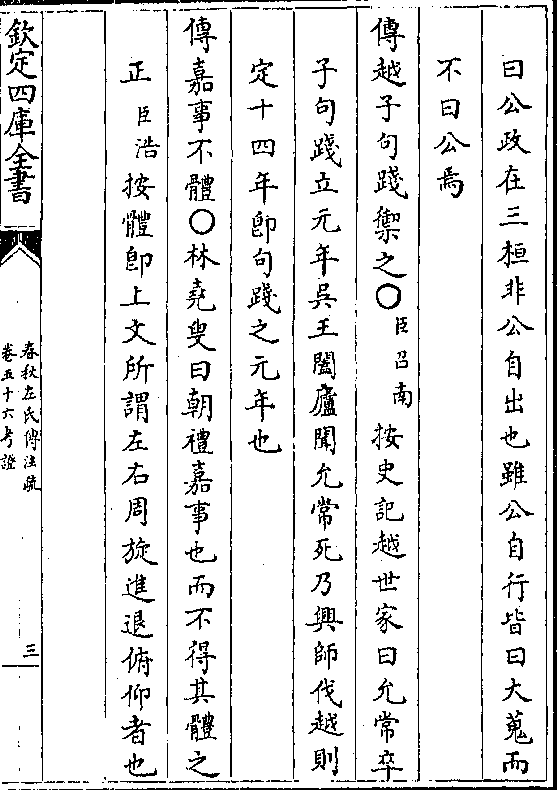 曰公政在三桓非公自出也雖公自行皆曰大蒐而
不曰公焉
傳越子句踐禦之〇臣召南按史記越世家曰允常卒
子句踐立元年吳王闔廬聞允常死乃興師伐越則
定十四年卽句踐之元年也
傳嘉事不體〇林堯叟曰朝禮嘉事也而不得其體之
正臣浩按體卽上文所謂左右周旋進退俯仰者也
欽定四庫全書
春秋左氏傳注疏
卷五十六考證
三